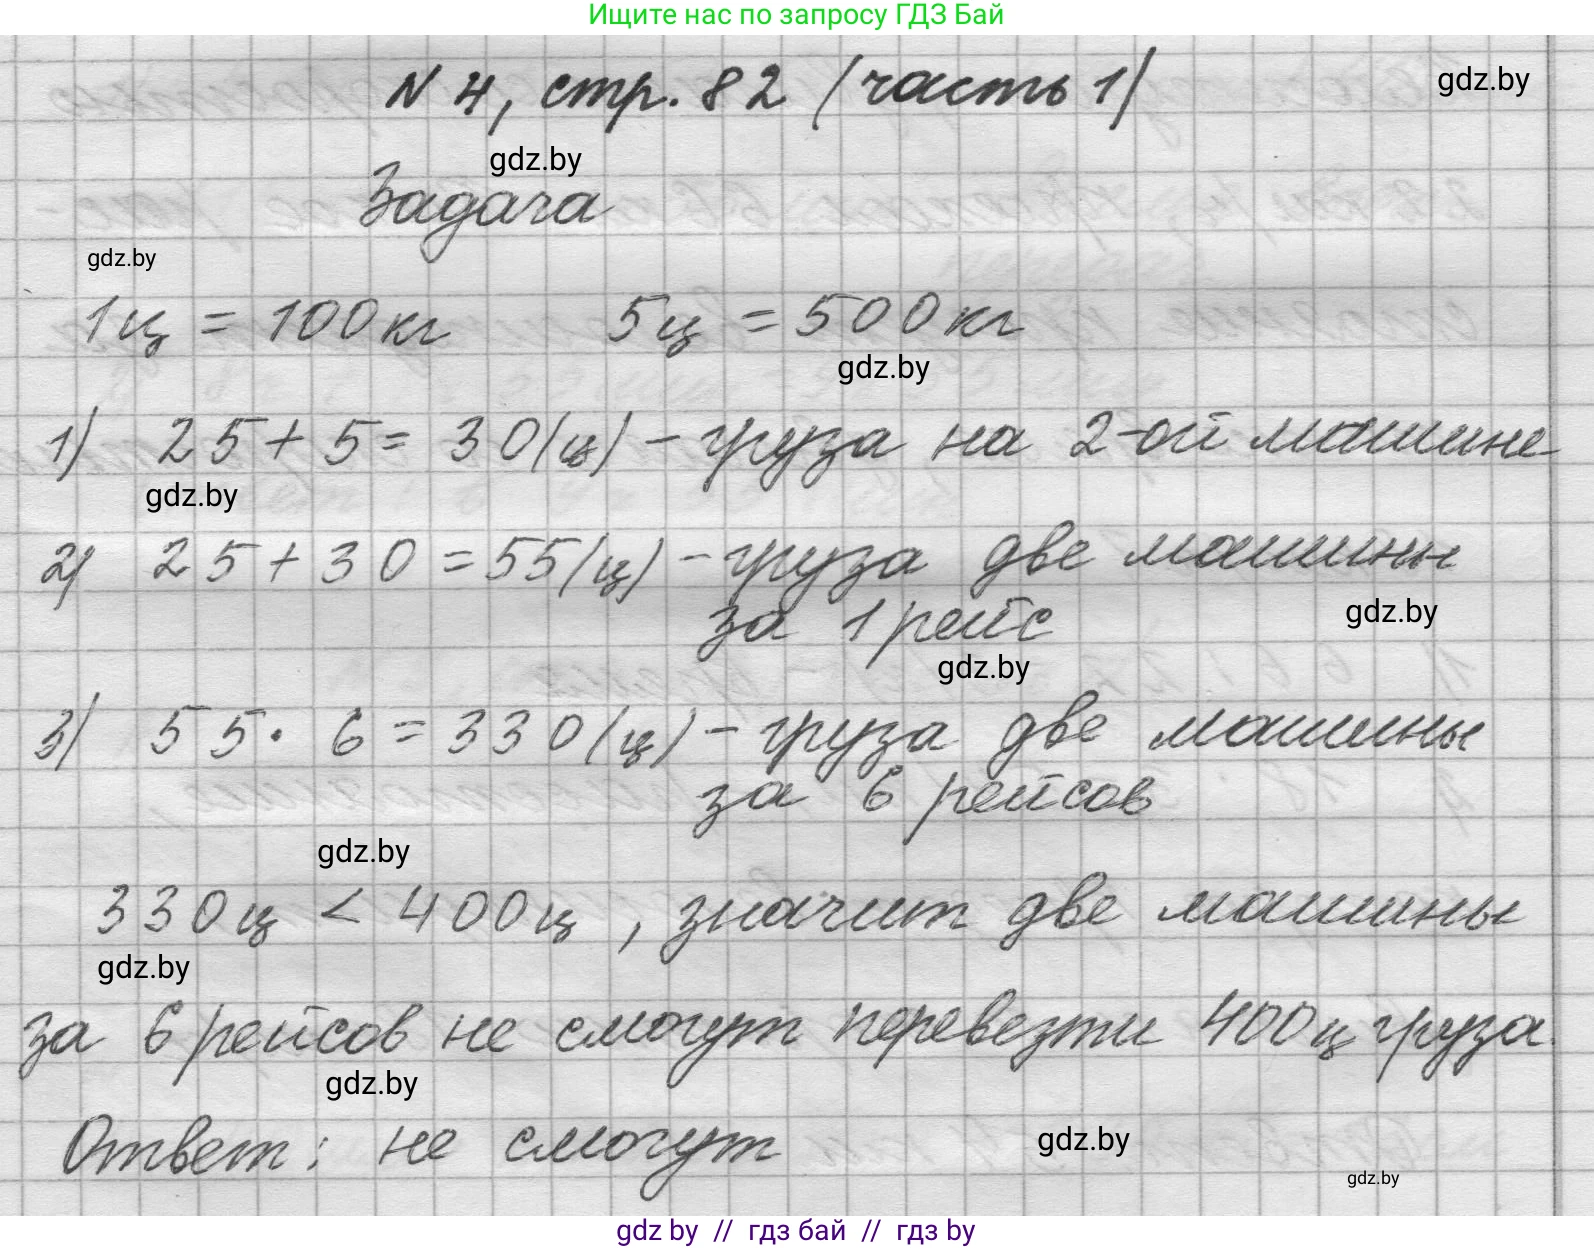 Ищите нас по запросу ГДЗ Бай
N 4, стр. 82 (часть 1)
gdz.by
gdz.by
Задача
gdz.by
1 ц = 100 кг 5 ц = 500 кг
gdz.by
1) 25 + 5 = 30 (ц) - груза на 2-ой машине
gdz.by
2) 25 + 30 = 55 (ц) - груза две машины
за 1 рейс
gdz.by
gdz.by
3) 55 · 6 = 330 (ц) - груза две машины
за 6 рейсов
gdz.by
330 ц < 400 ц, значит две машины
gdz.by
за 6 рейсов не смогут перевезти 400 ц груза.
gdz.by
Ответ: не смогут
gdz.by
gdz.by
gdz by // гдз бай // гдз by